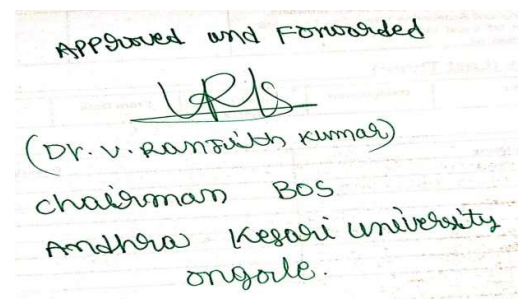 Approved and Forwarded
(Dr. V. Ranjith Kumar)
chairman BOS
Andhra Kesari University
ongole.